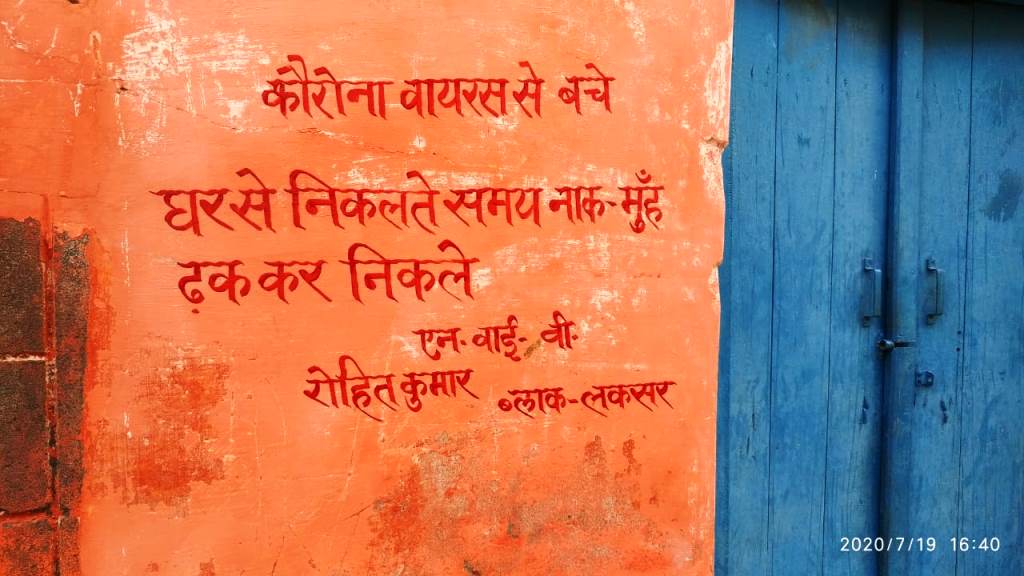 कौरोना वायरस से बचे
घर से निकलते समय नाक-मुँह
ढ़क कर निकले
एन. वाई- वी.
रोहित कुमार ब्लाक-लकसर
2020/7/19 16:40